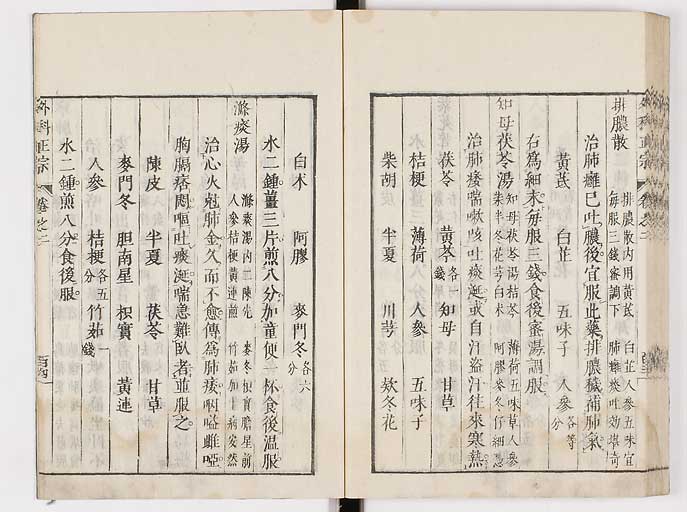 排膿散 排膿散内用黃芪 白芷人參五味宜
每服三錢蜜調下 肺癰燉吐効學奇
治肺癰已吐膿後宜服此藥排膿穢補肺氣
黃芪 白芷 五味子 人參各等分
右爲細末每服三錢食後蜜湯調服
知母茯苓湯 知母茯苓湯桔芩 薄荷五味草人參
柴半冬花芎白朮 阿膠麥冬仔細
治肺痿喘嗽咳吐痰涎或自汗盗汗往來寒熱
茯苓 黃芩各一錢 知母 甘草
桔梗 薄荷 人參 五味子
柴胡 半夏 川芎 欵冬花
白朮 阿膠 麥門冬各六分
水二鍾薑三片煎八分加童便一杯食後温服
滌痰湯 滌痰湯内二陳先 麥冬枳實膽星前
人參桔梗黃連煎 竹茹加十病安然
治心火尅肺金久而不愈傳爲肺痿咽嗌雌啞
胸膈痞悶嘔吐痰涎喘急難臥者並服之
陳皮 半夏 茯苓 甘草
麥門冬 胆南星 枳實 黃連
人參 桔梗各五分 竹茹一錢
水二鍾煎八分食後服
外科正宗 卷之二 百四